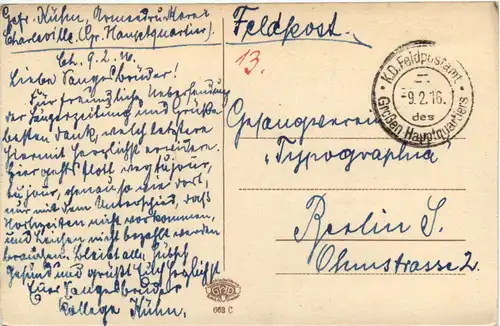 Gefr. Kühn, Armeedruckerei
Charleville (Gr. Hauptquartier).
Ch. 9.2.16.
Liebe Sangesbrüder!
Für freundliche Uebersendung
der Sängerzeitung und Grüße
besten Dank, welch letztere
hiermit herzlichst erwidere.
Hier geht's flott
genau so wie dort,
nur mit dem Unterschied, daß
Hochzeiten nicht vorkommen,
und Leichen nicht bezahlt werden
brauchen. Bleibt alle hübsch
gesund und grüßt Euch herzlichst
Eures Sangesbruders
Kollege Kühn.
Feldpost.
13.
K.D. Feldpostamt
-9.2.16.
des
Großen Hauptquartiers
Gesangverein
„Typographia“
Berlin S.
Ohmstrasse 2.
068 C